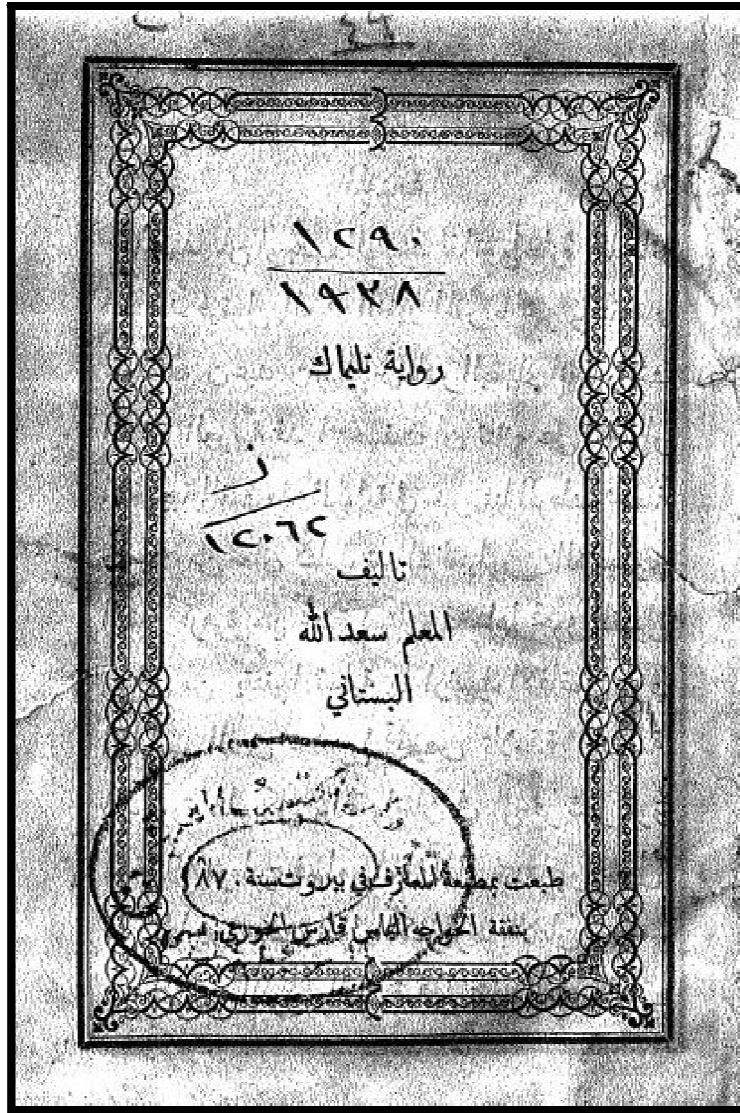 ١٢٩٠
١٩٣٨
رواية تليماك
ز
١٢٠٦٢
تاليف
المعلم سعدالله
البستاني
طبعت بمطبعة المعارف في بيروت سنة ١٨٧٠
بنفقة الخواجه الياس فارس الخوري